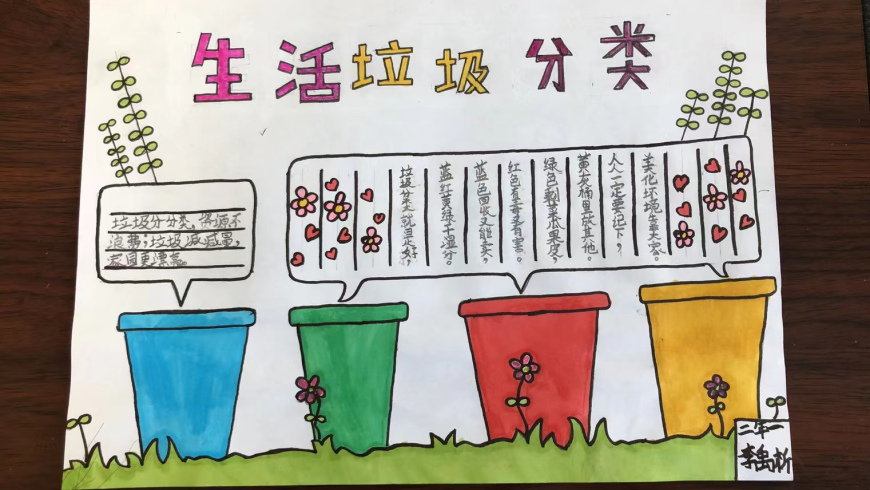 生活垃圾分类
垃圾分分类,资源不
浪费;垃圾减减量,
家园更漂亮
垃圾分类就是好,
蓝红黄绿干湿分。
蓝色回收又能卖,
红色有毒有害。
绿色剩菜瓜果皮,
黄灰桶里放其他。
人人一定要记下,
美化环境靠大家。
二年一
李禹析